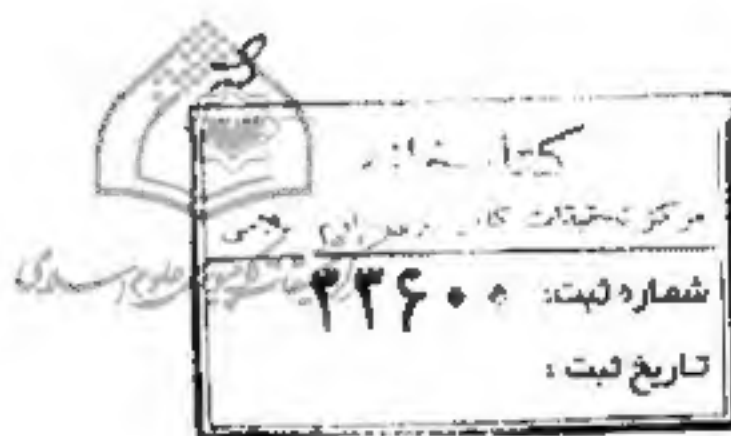 کتابخانه
مرکز تحقیقات کامپیوتری علوم اسلامی
شماره ثبت: ۳۳۶۰۰
تاریخ ثبت: